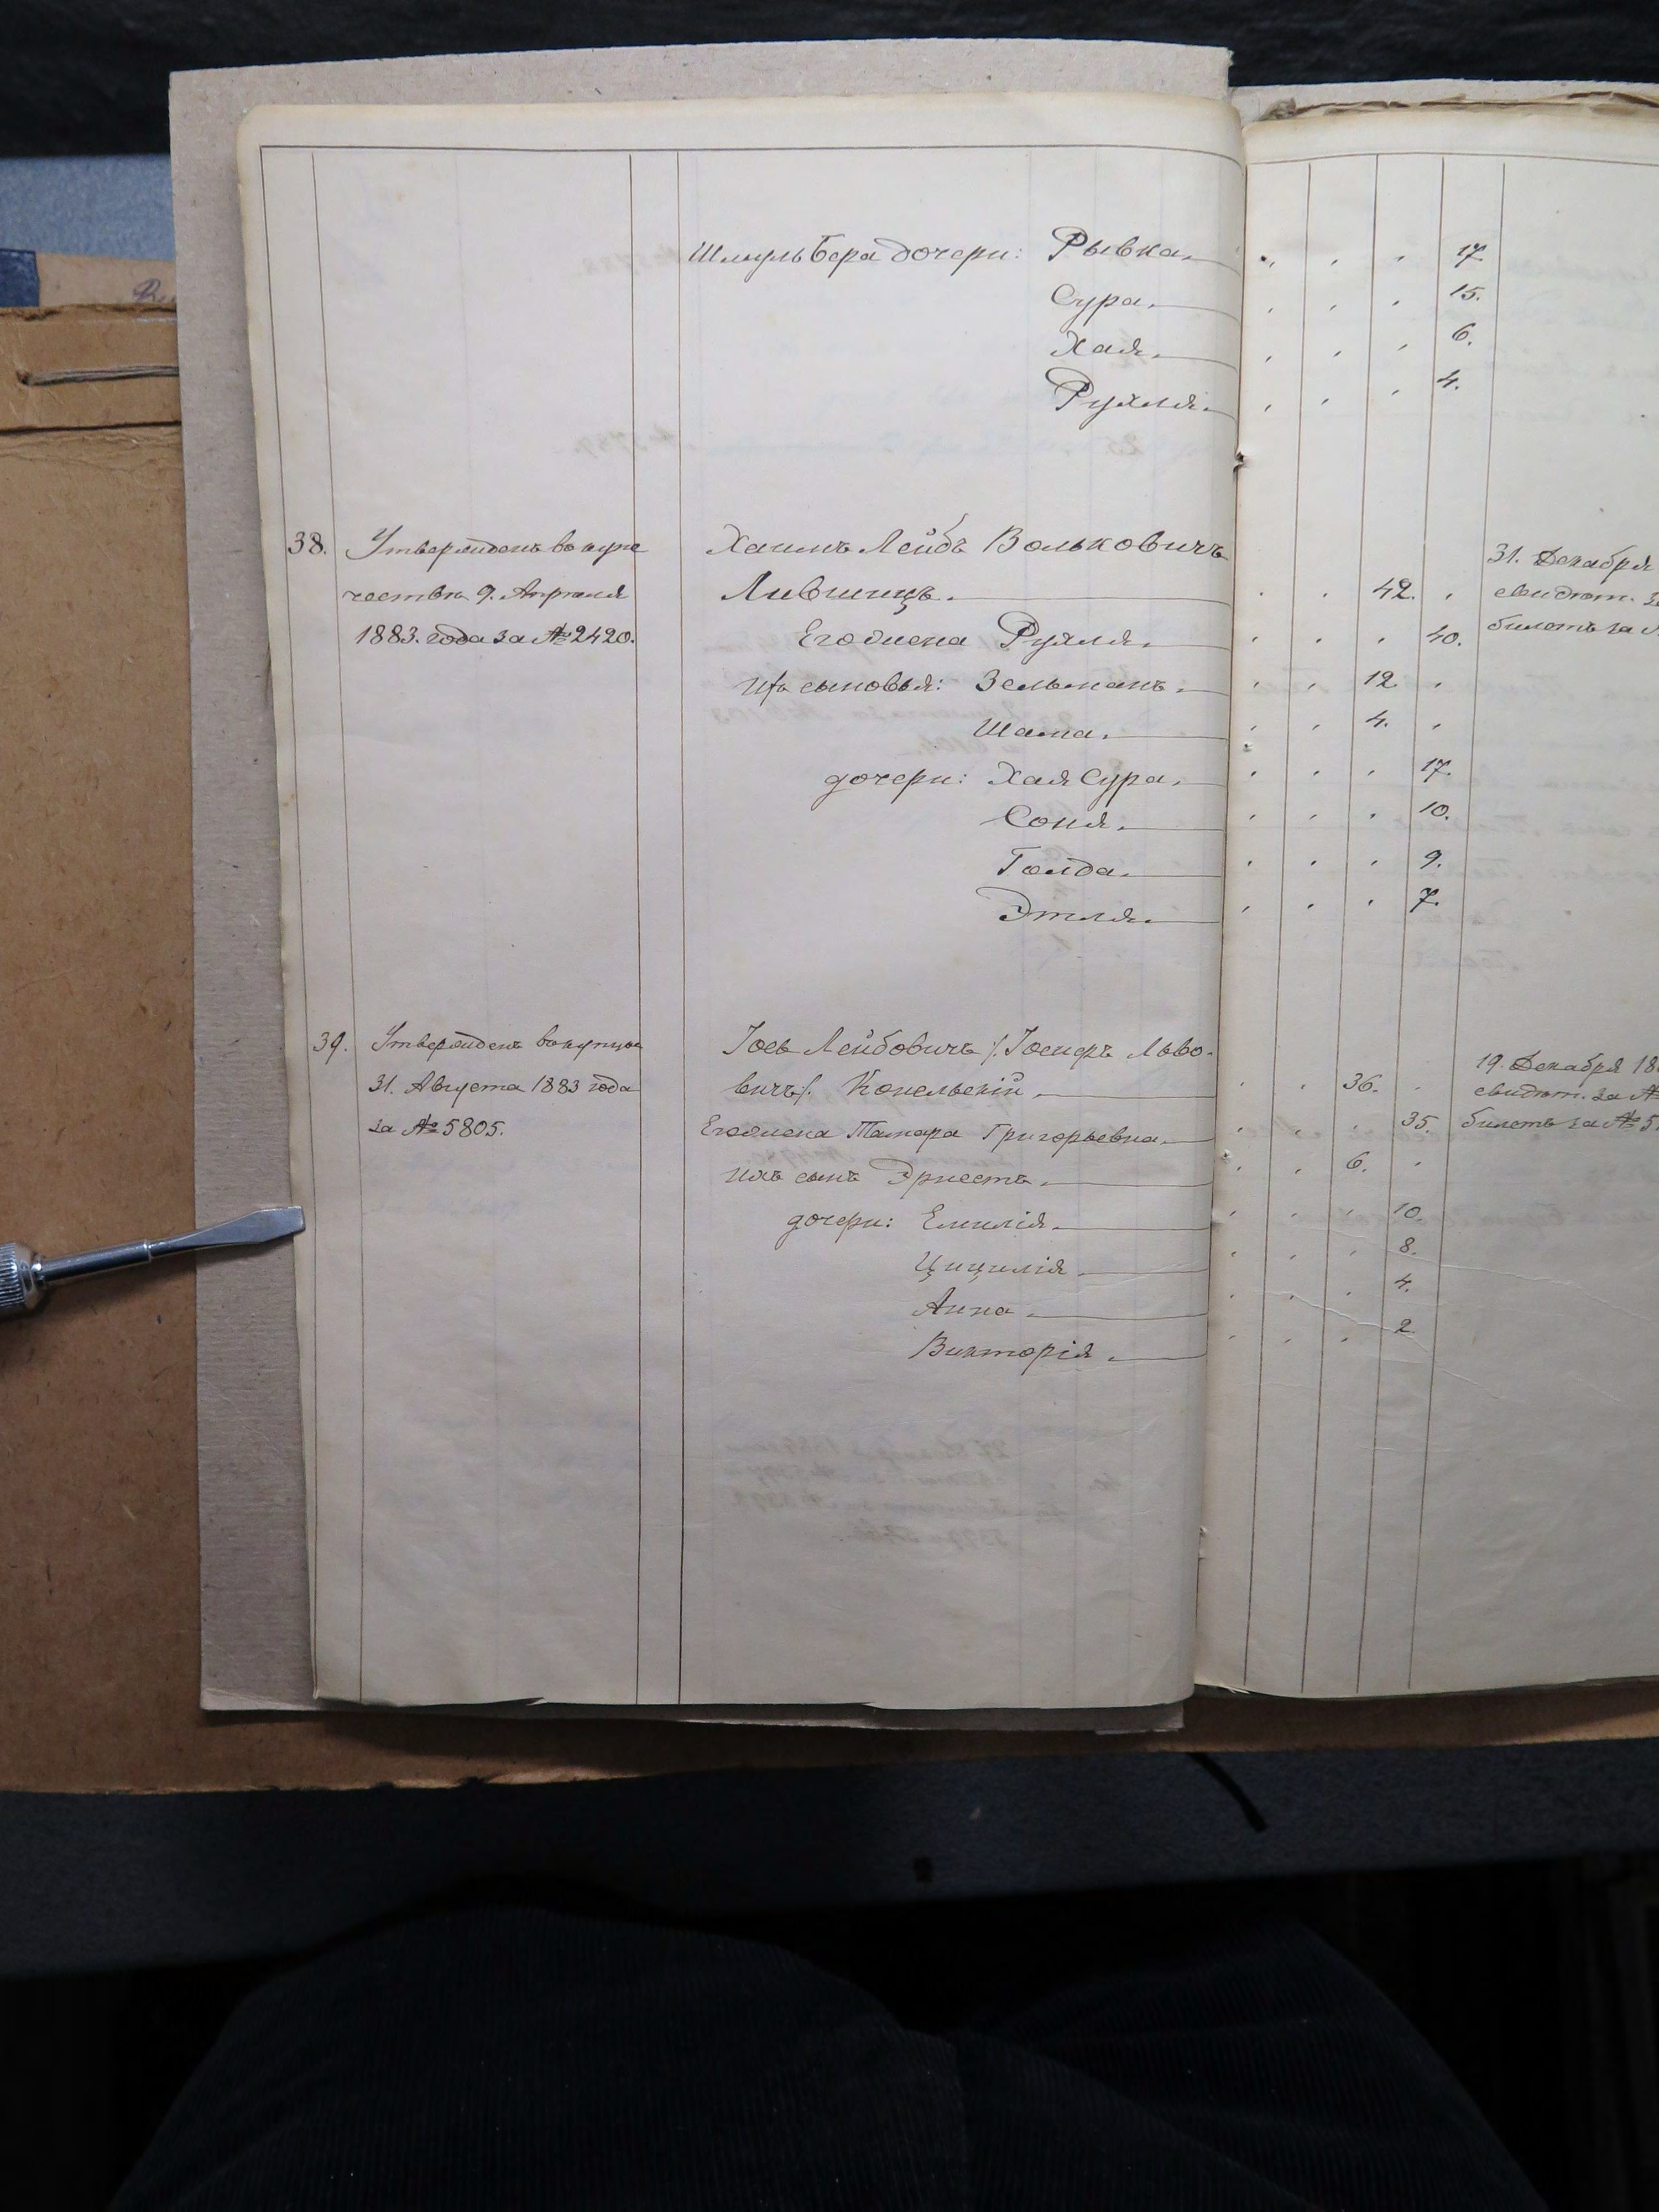 Шмуль Бера дочери: Рывка. 17.
Сура. 15.
Хая. 6.
Рухля. 4.
38. Утвержденъ въ купе Хаимъ Лейбъ Вольковичъ 31. Декабря
чествѣ 9. Апреля Лившицъ. 42. свидѣт.
1883. года за № 2420. Его жена Рухля. 40. билетъ за
Ихъ сыновья: Зельманъ. 12.
Шама. 4.
дочери: Хая Сура. 17.
Соня. 10.
Голда. 9.
Этля. 7.
39. Утвержденъ въ купцы Іось Лейбовичъ /:Іосифъ Льво- 19. Декабря 18
31. Августа 1883 года вичъ:/. Копельскій. 36. свидѣт. за №
за № 5805. Его жена Тамара Григорьевна. 35. билетъ за № 5
Ихъ сынъ Эрнестъ. 6.
дочери: Емилія. 10.
Цицилія. 8.
Анна. 4.
Викторія. 2.